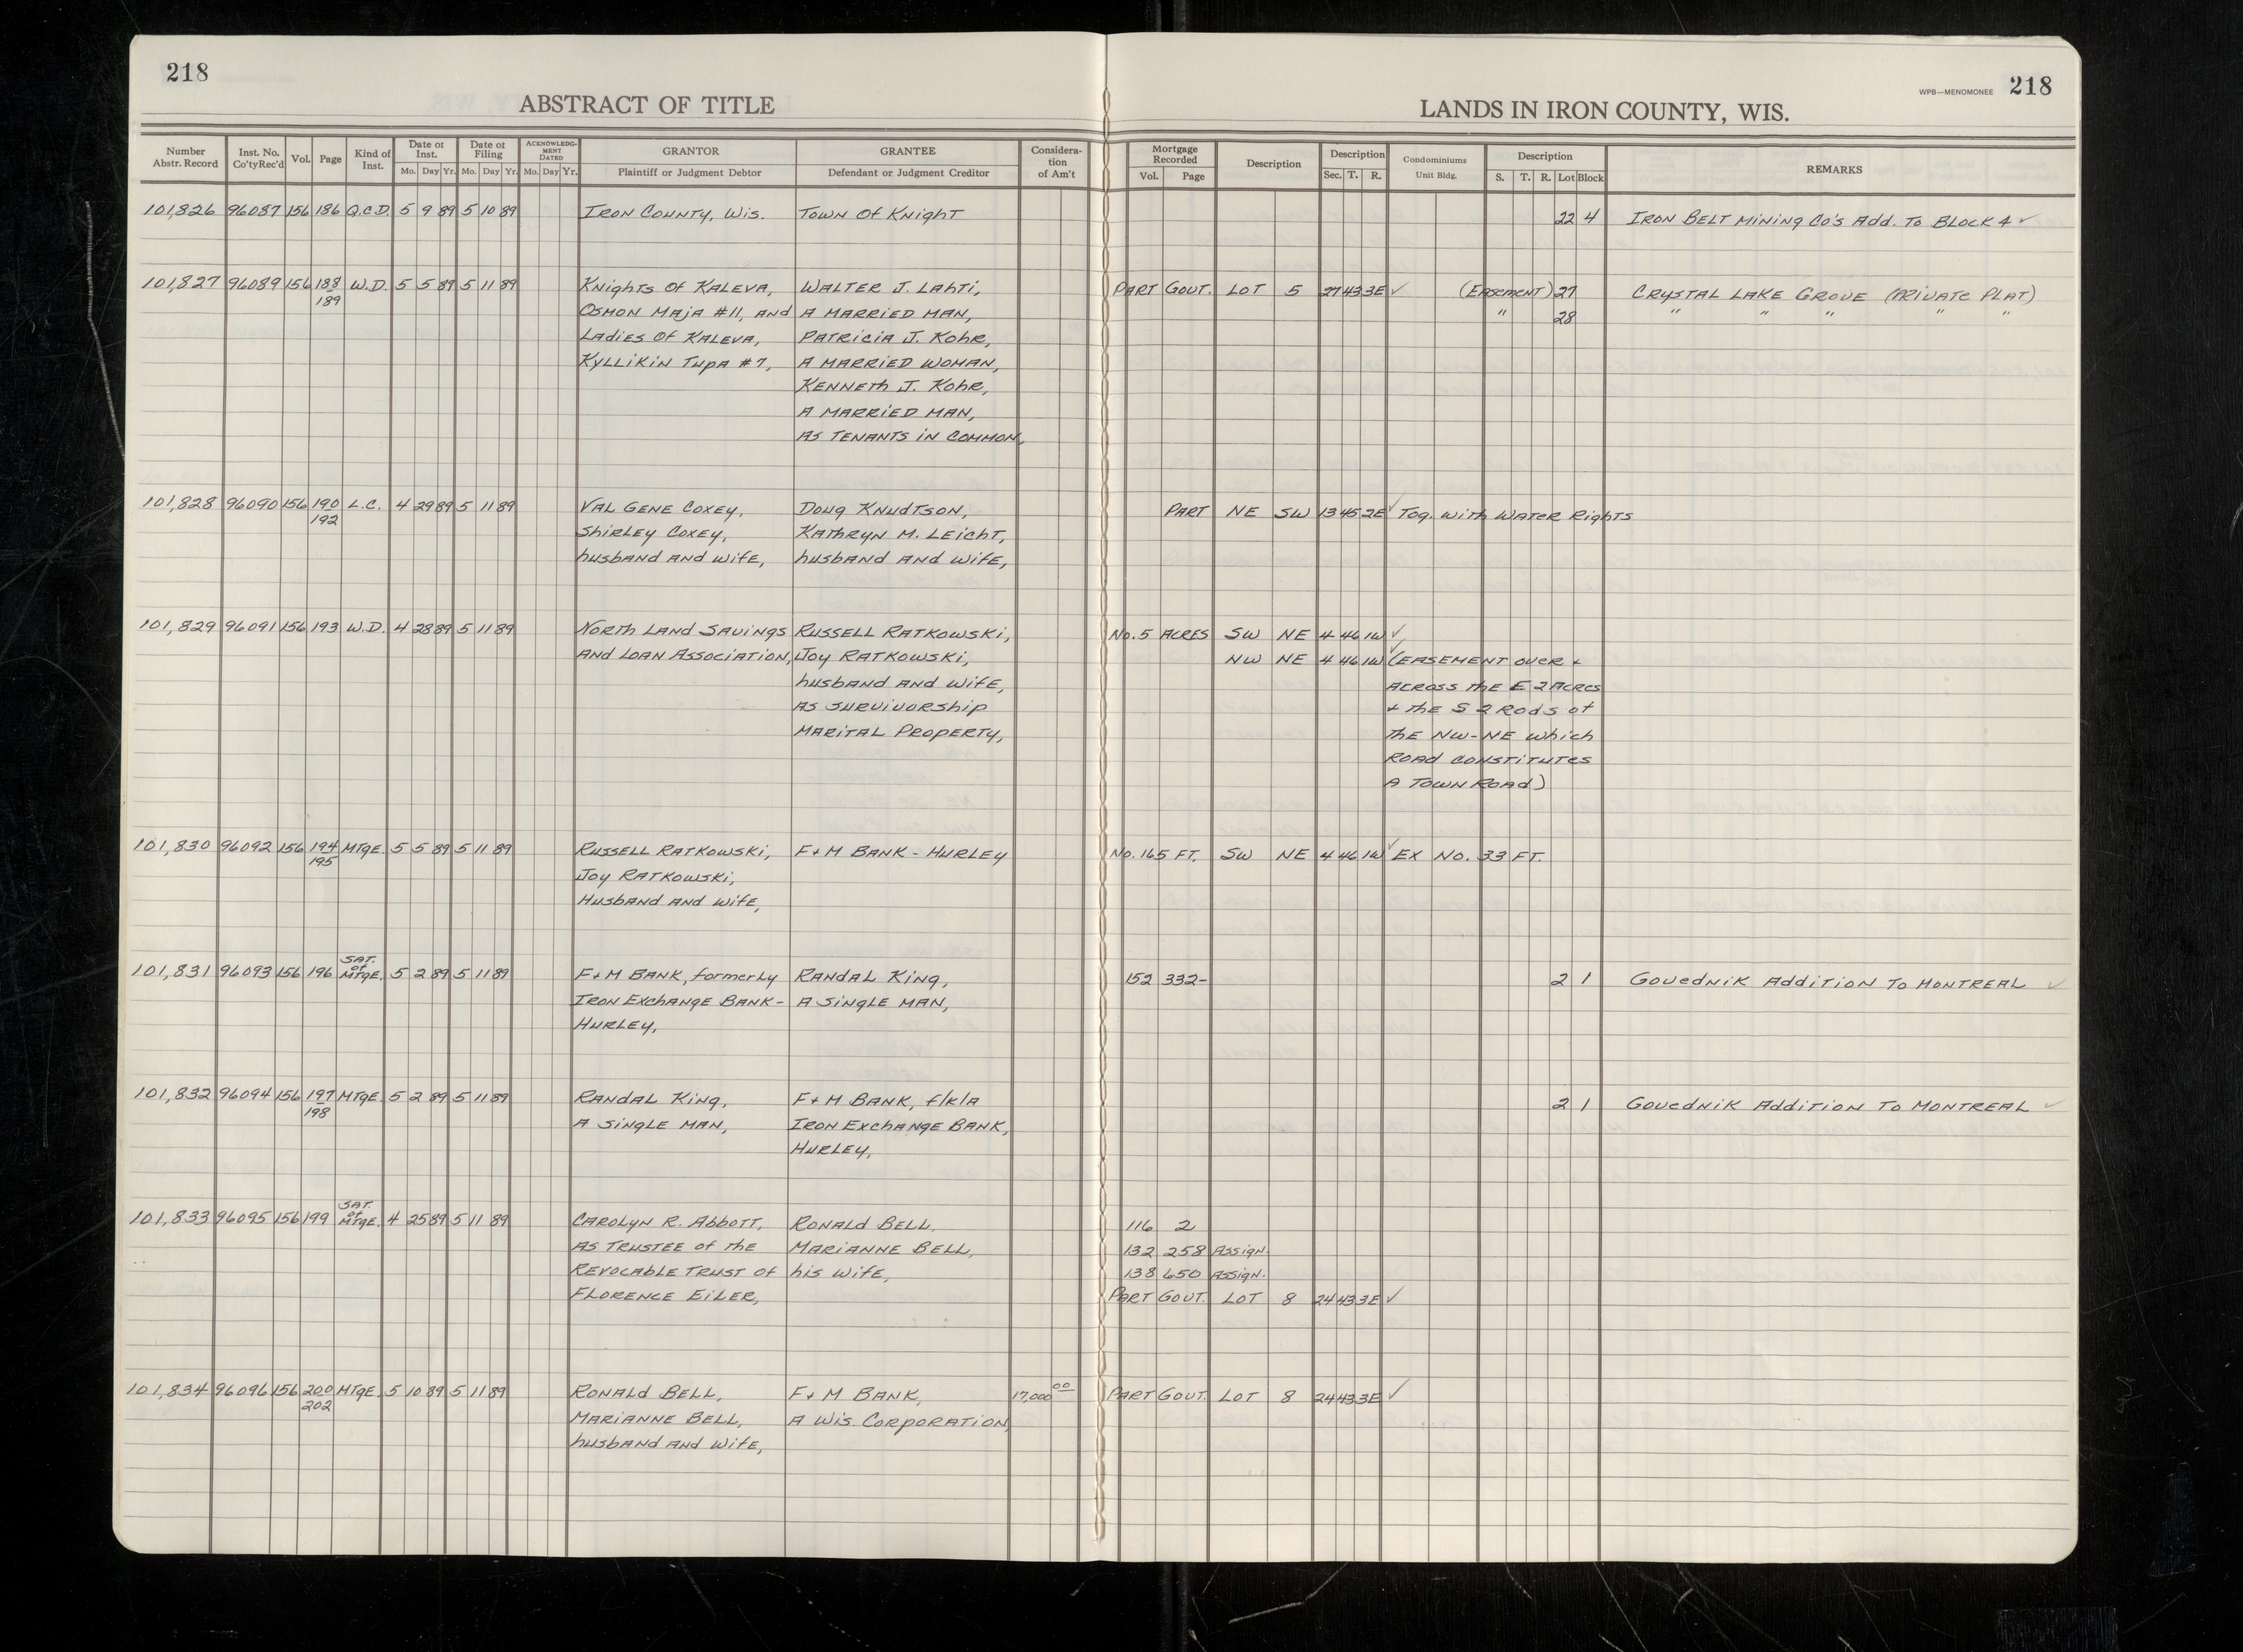 218
ABSTRACT OF TITLE
LANDS IN IRON COUNTY, WIS.
WPB—MENOMONEE 218
Number Abstr. Record Inst. No. Co'tyRec'd Vol. Page Kind of Inst. Date of Inst. Mo. Day Yr. Date of Filing Mo. Day Yr. ACKNOWLEDGMENT DATED Mo. Day Yr. GRANTOR Plaintiff or Judgment Debtor GRANTEE Defendant or Judgment Creditor Consideration of Am't Mortgage Recorded Vol. Page Description Description Sec. T. R. Condominiums Unit Bldg. Description S. T. R. Lot Block REMARKS
101,826 96087 156 186 Q.C.D. 5 9 89 5 10 89 IRON COUNTY, WIS. TOWN OF KNIGHT 22 4 IRON BELT MINING CO'S ADD. TO BLOCK 4 ✓
101,827 96089 156 188 W.D. 5 5 89 5 11 89 KNIGHTS OF KALEVA, WALTER J. LAHTI, PART GOVT. LOT 5 27 43 3E ✓ (EASEMENT) 27 CRYSTAL LAKE GROVE (PRIVATE PLAT)
189 OSMON MAJA #11, AND A MARRIED MAN, " 28 " " " " "
LADIES OF KALEVA, PATRICIA J. KOHR,
KYLLIKIN TUPA #7, A MARRIED WOMAN,
KENNETH J. KOHR,
A MARRIED MAN,
AS TENANTS IN COMMON,
101,828 96090 156 190 L.C. 4 29 89 5 11 89 VAL GENE COXEY, DOUG KNUDTSON, PART NE SW 13 45 2E ✓ TOG. WITH WATER RIGHTS
192 SHIRLEY COXEY, KATHRYN M. LEICHT,
HUSBAND AND WIFE, HUSBAND AND WIFE,
101,829 96091 156 193 W.D. 4 28 89 5 11 89 NORTH LAND SAVINGS RUSSELL RATKOWSKI, NO. 5 ACRES SW NE 4 46 1W ✓
AND LOAN ASSOCIATION, JOY RATKOWSKI, NW NE 4 46 1W (EASEMENT OVER +
HUSBAND AND WIFE, ACROSS THE E 2 ACRES
AS SURVIVORSHIP + THE S 2 RODS OF
MARITAL PROPERTY, THE NW-NE WHICH
ROAD CONSTITUTES
A TOWN ROAD)
101,830 96092 156 194 MTGE. 5 5 89 5 11 89 RUSSELL RATKOWSKI, F+M BANK - HURLEY NO. 165 FT. SW NE 4 46 1W ✓ EX NO. 33 FT.
195 JOY RATKOWSKI,
HUSBAND AND WIFE,
101,831 96093 156 196 SAT. OF MTGE. 5 2 89 5 11 89 F+M BANK, FORMERLY RANDAL KING, 152 332- 2 1 GOVEDNIK ADDITION TO MONTREAL ✓
IRON EXCHANGE BANK- A SINGLE MAN,
HURLEY,
101,832 96094 156 197 MTGE. 5 2 89 5 11 89 RANDAL KING, F+M BANK, F/K/A 2 1 GOVEDNIK ADDITION TO MONTREAL ✓
198 A SINGLE MAN, IRON EXCHANGE BANK,
HURLEY,
101,833 96095 156 199 SAT. OF MTGE. 4 25 89 5 11 89 CAROLYN R. ABBOTT, RONALD BELL, 116 2
AS TRUSTEE OF THE MARIANNE BELL, 132 258 ASSIGN.
REVOCABLE TRUST OF HIS WIFE, 138 650 ASSIGN.
FLORENCE EILER, PART GOVT. LOT 8 24 43 3E ✓
101,834 96096 156 200 MTGE. 5 10 89 5 11 89 RONALD BELL, F+M BANK, 17,000 00 PART GOVT. LOT 8 24 43 3E ✓
202 MARIANNE BELL, A WIS. CORPORATION,
HUSBAND AND WIFE,